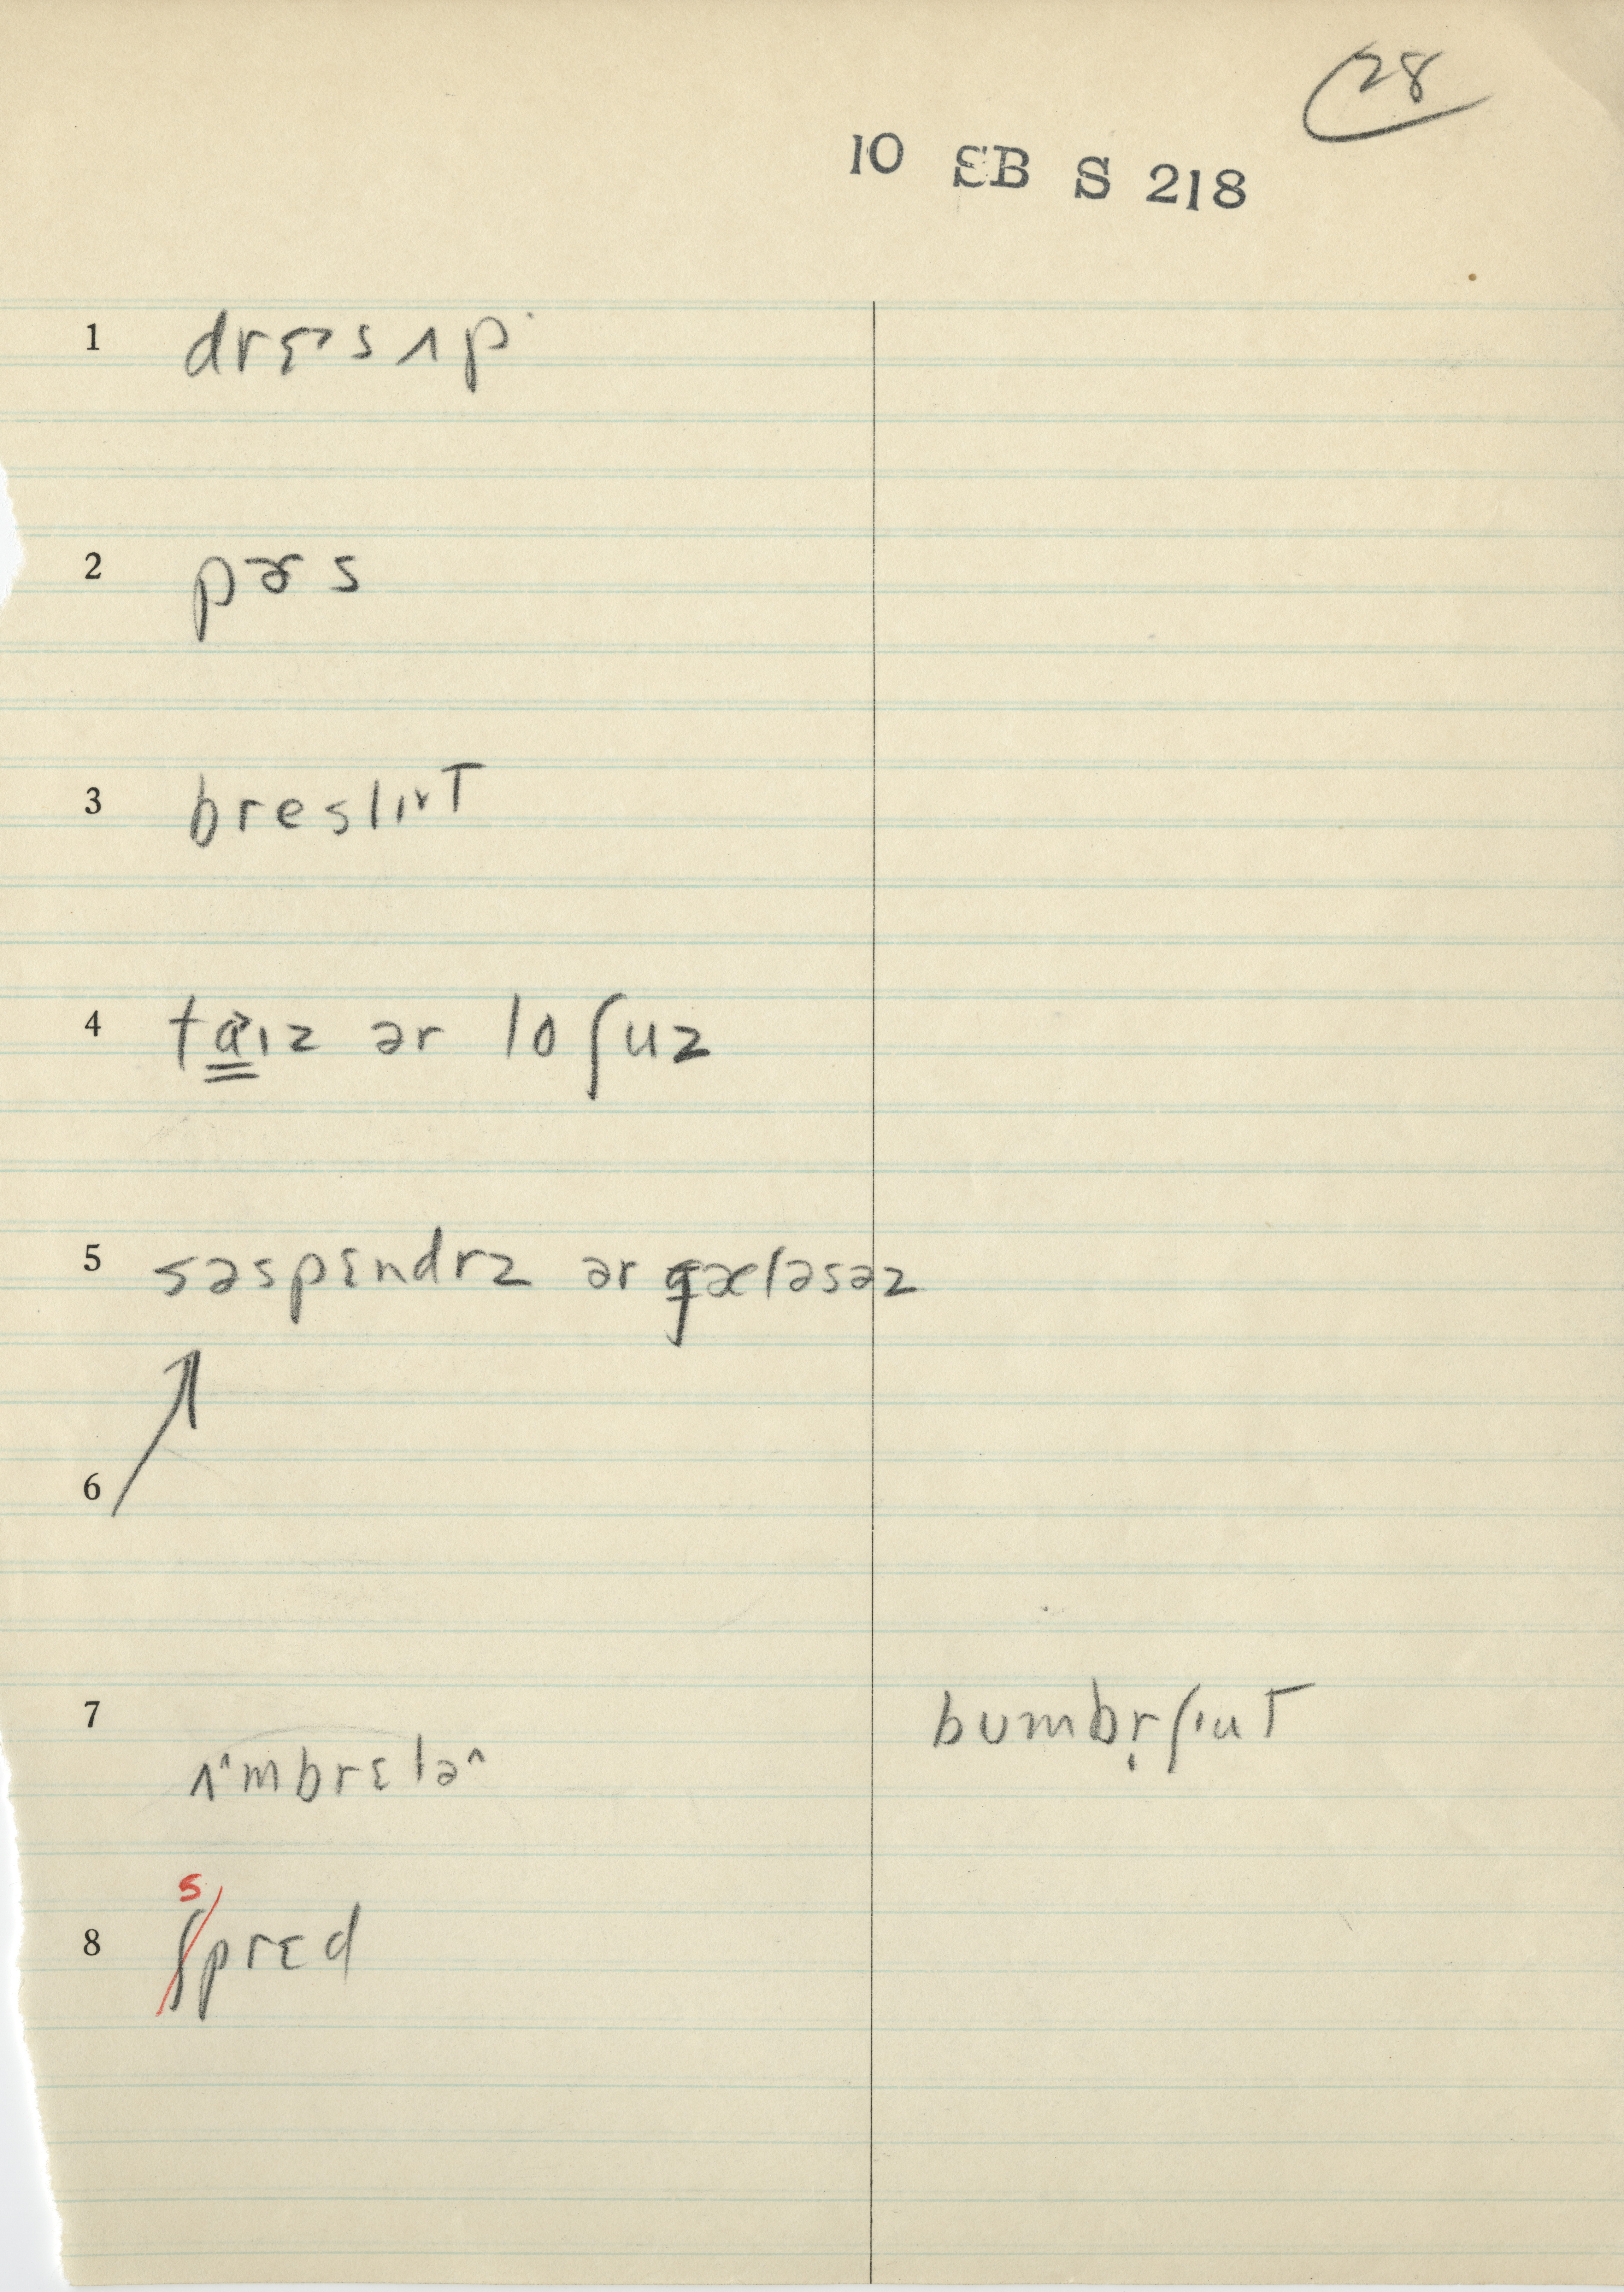 28
10 SB S 218
1 drɛ˃sʌp
2 pɚs
3 breslɪᵛT
4 ta̳˃ɪz ər loʃuz
5 səspɛndrz ər gæləsəz
6
7 ʌ^mbrɛlə^ bumbr̩ʃɪuT
s
8 ʃprɛd